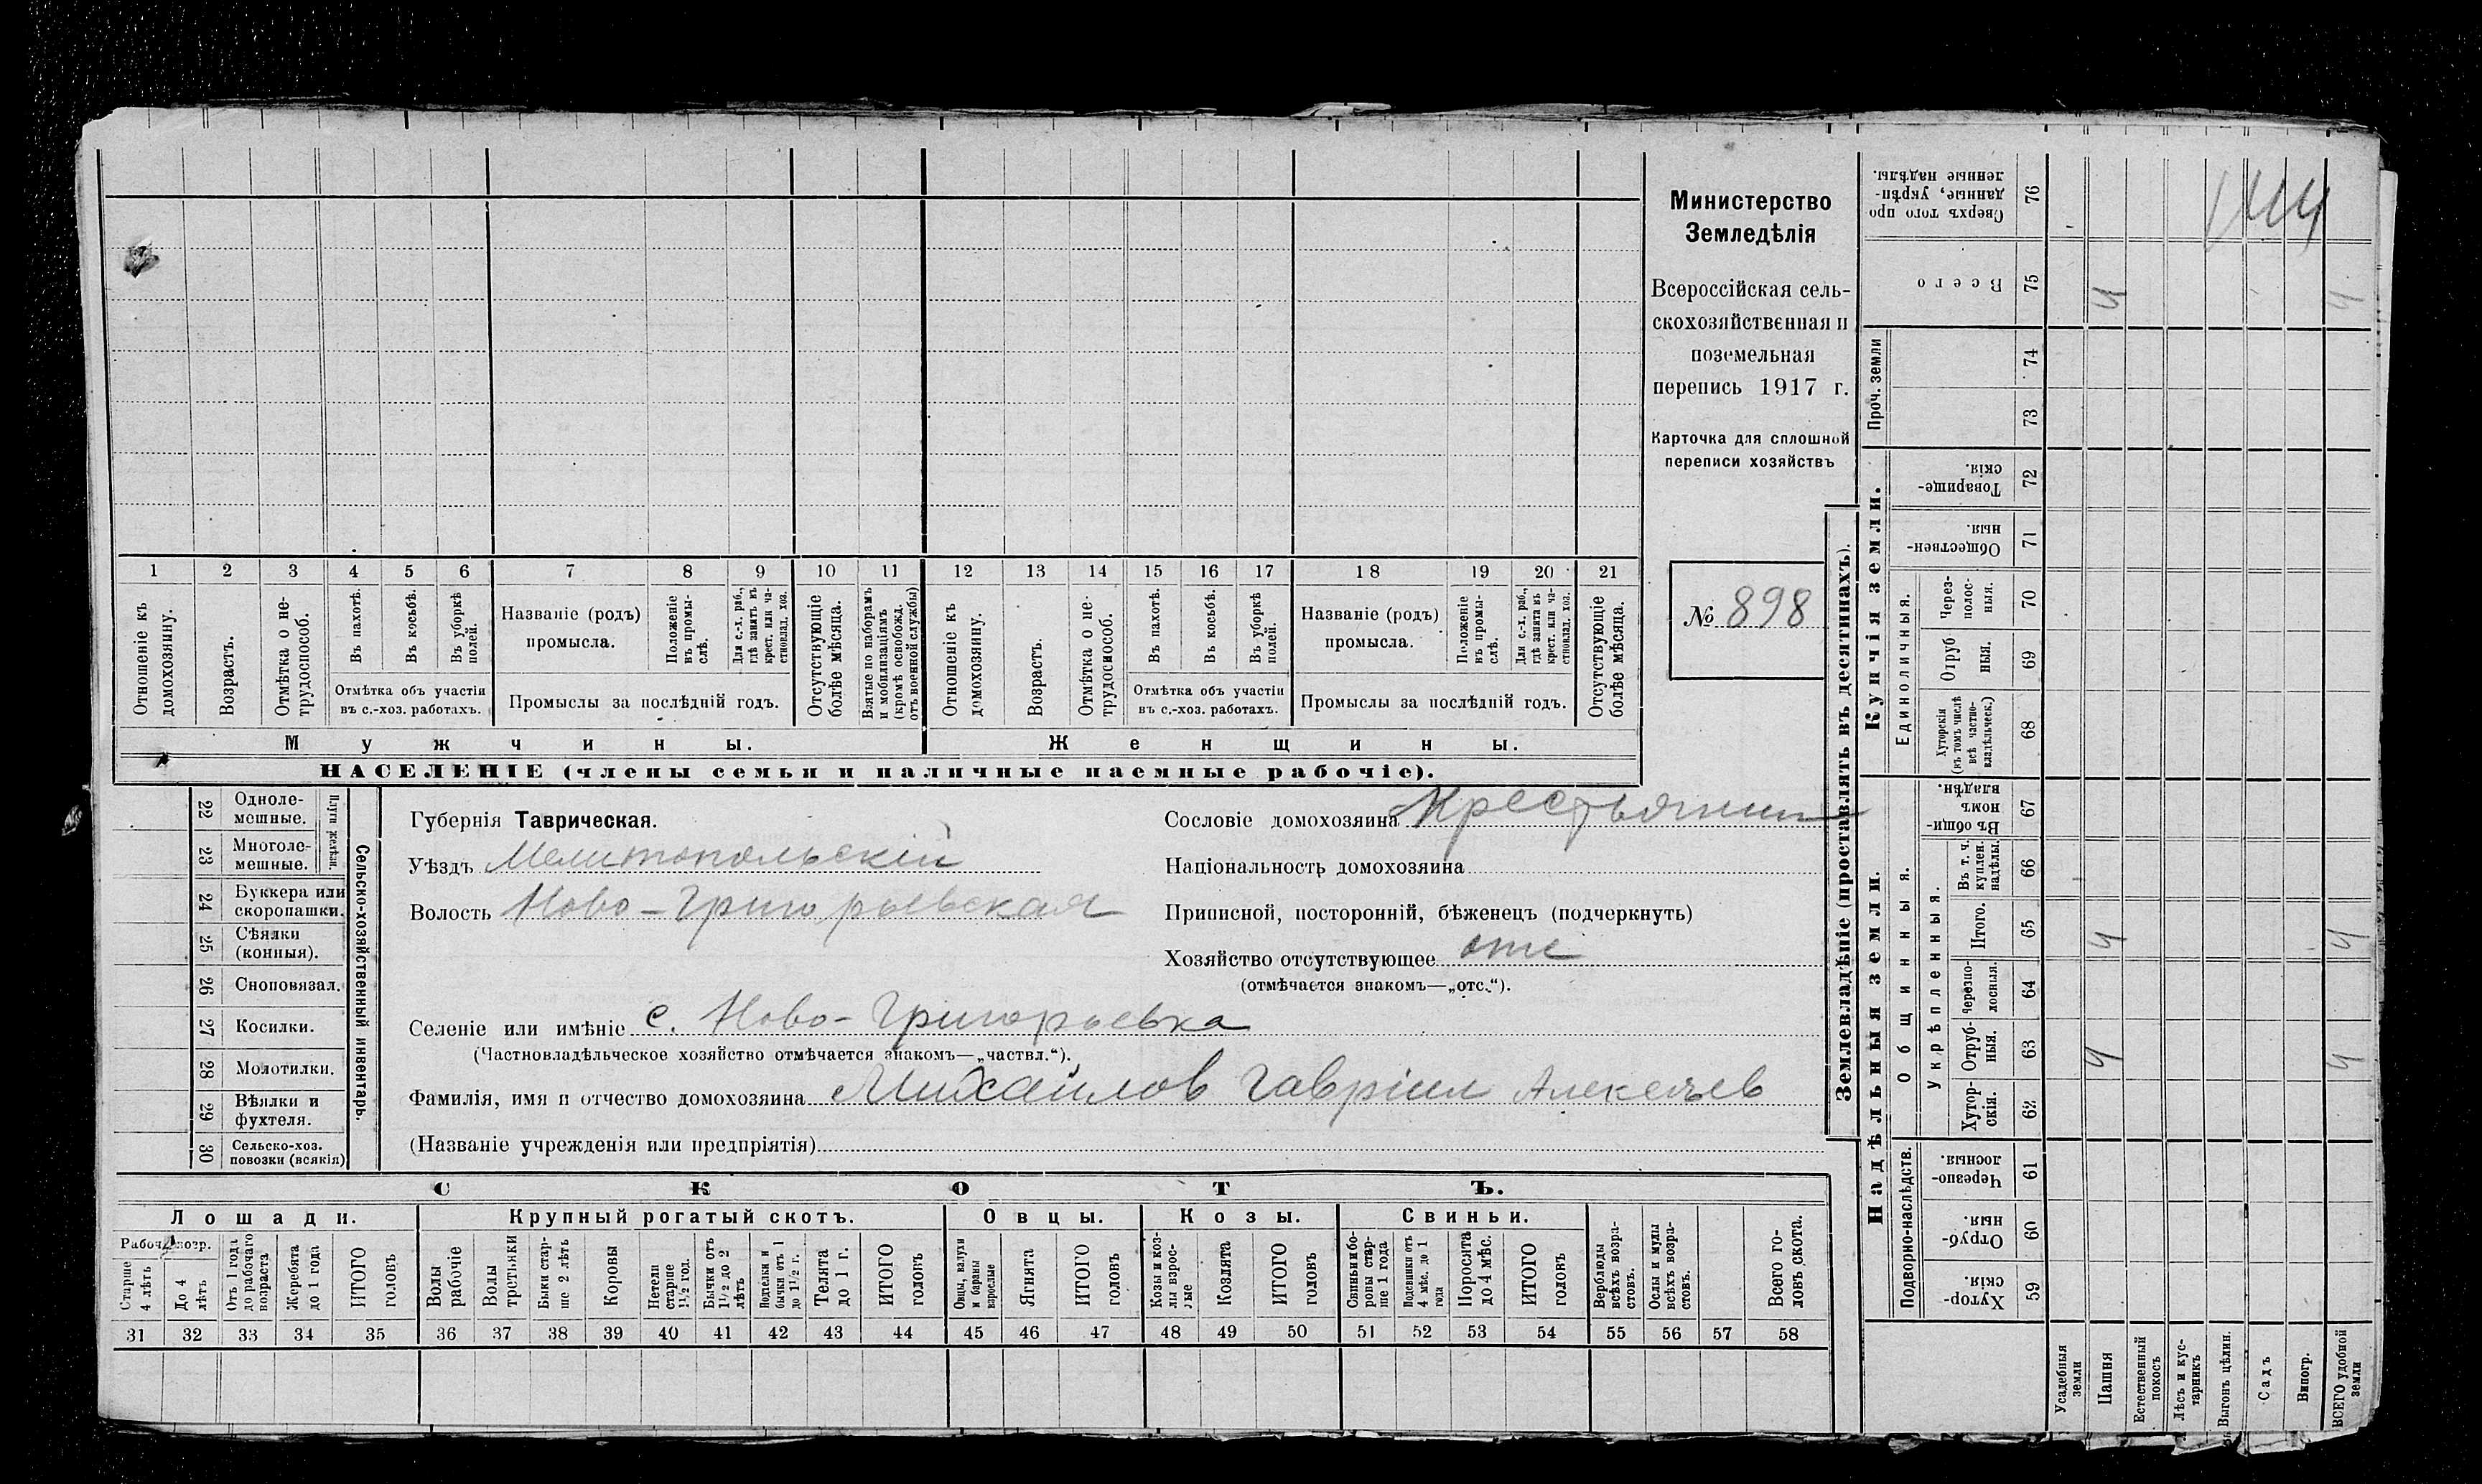 Министерство
Земледѣлія
Всероссійская сель-
скохозяйственная и
поземельная
перепись 1917 г.
Карточка для сплошной
переписи хозяйствъ
№ 898
1 2 3 4 5 6 7 8 9 10 11 12 13 14 15 16 17 18 19 20 21
Отношеніе къ домохозяину.
Возрастъ.
Отмѣтка о не-трудоспособ.
Въ пахотѣ.
Въ косьбѣ.
Въ уборкѣ полей.
Отмѣтка объ участіи
въ с.-хоз. работахъ.
Названіе (родъ)
промысла.
Положеніе въ промы-слѣ.
Для с.-х. раб., гдѣ занятъ въ крест. или ча-стновлад. хоз.
Промыслы за послѣдній годъ.
Отсутствующіе болѣе мѣсяца.
Взятые по наборамъ и мобилизаціямъ (кромѣ освобожд. отъ военной службы)
Отношеніе къ домохозяину.
Возрастъ.
Отмѣтка о не-трудоспособ.
Въ пахотѣ.
Въ косьбѣ.
Въ уборкѣ полей.
Отмѣтка объ участіи
въ с.-хоз. работахъ.
Названіе (родъ)
промысла.
Положеніе въ промы-слѣ.
Для с.-х. раб., гдѣ занята въ крест. или ча-стновлад. хоз.
Промыслы за послѣдній годъ.
Отсутствующіе болѣе мѣсяца.
Мужчины.
Женщины.
НАСЕЛЕНІЕ (члены семьи и наличные наемные рабочіе).
22 Одноле-мешные.
23 Многоле-мешные.
Плуги желѣзн.
24 Буккера или скоропашки.
25 Сѣялки (конныя).
26 Сноповязал.
27 Косилки.
28 Молотилки.
29 Вѣялки и фухтеля.
30 Сельско-хоз. повозки (всякія)
Сельско-хозяйственный инвентарь.
Губернія Таврическая.
Уѣздъ Мелитопольскій
Волость Ново-Григорьевская
Сословіе домохозяина Крестьянин
Національность домохозяина
Приписной, посторонній, бѣженецъ (подчеркнуть)
Хозяйство отсутствующее отс
(отмѣчается знакомъ—„отс.“).
Селеніе или имѣніе с. Ново-Григорьевка
(Частновладѣльческое хозяйство отмѣчается знакомъ—„частвл.“).
Фамилія, имя и отчество домохозяина Михайлов Гавріил Алексеев
(Названіе учрежденія или предпріятія)
СКОТЪ.
Лошади.
Крупный рогатый скотъ.
Овцы.
Козы.
Свиньи.
Рабоч. возр.
Старше 4 лѣтъ
До 4 лѣтъ
Отъ 1 года до рабочаго возраста
Жеребята до 1 года
ИТОГО головъ
Волы рабочіе
Волы
Быки стар-ше 2 лѣтъ
Коровы
Нетели старше 1½ год.
Бычки отъ 1½ до 2 лѣтъ
Подтелки и бычки отъ 1 до 1½ г.
Телята до 1 г.
ИТОГО головъ
Овцы, валухи и бараны взрослые
Ягнята
ИТОГО головъ
Козы и коз-лы взрос-лые
Козлята
ИТОГО головъ
Свиньи и бо-ровы стар-ше 1 года
Подсвинки отъ 4 мѣс. до 1 года
Поросята до 4 мѣс.
ИТОГО головъ
Верблюды всѣхъ возра-стовъ.
Ослы и мулы всѣхъ возра-стовъ.
Всего го-ловъ скота.
31 32 33 34 35 36 37 38 39 40 41 42 43 44 45 46 47 48 49 50 51 52 53 54 55 56 57 58
Землевладѣніе (проставлять въ десятинахъ).
Надѣльныя земли.
Купчія земли.
Проч. земли
Подворно-наслѣдств.
Общинныя.
Укрѣпленныя.
Единоличныя.
Сверхъ того про данные, укрѣп-ленные надѣлы. 76
Всего 75 4 4
74
73
Товарище-скія. 72
Обществен-ныя. 71
Через-полос-ныя. 70
Отруб ныя. 69
Хуторскія (въ томъ числѣ всѣ частно-владѣльческ.) 68
Въ общи-номъ владѣн. 67
Въ т. ч. куплен. надѣлы. 66
Итого. 65 4 4
Черезпо-лосныя. 64
Отруб-ныя. 63 4 4
Хутор-скія. 62
Черезпо-лосныя. 61
Отруб-ныя. 60
Хутор-скія. 59
Усадебныя земли
Пашня
Естественный покосъ
Лѣсъ и кус-тарникъ
Выгонъ цѣлин.
Садъ
Виногр.
ВСЕГО удобной земли